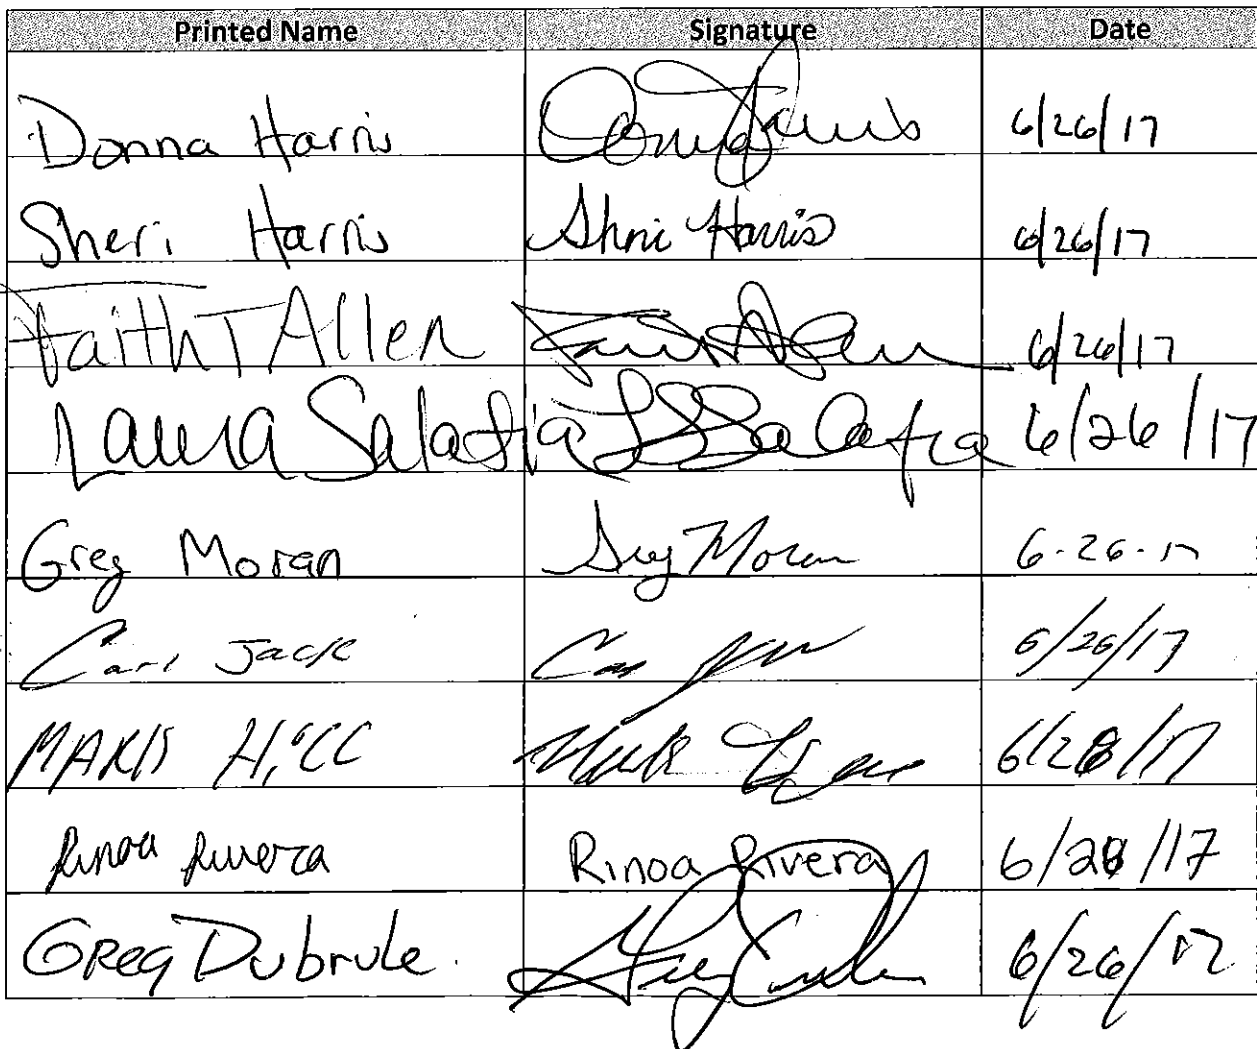 Printed Name Signature Date
Donna Harris Donna Harris 6/26/17
Sheri Harris Sheri Harris 6/26/17
Faith T Allen Faith Allen 6/26/17
Laura Salafia LSSalafia 6/26/17
Greg Moran Greg Moran 6-26-17
Carl Jack 6/26/17
6/28/17
Rinoa Rivera Rinoa Rivera 6/28/17
Greg Dubrule 6/26/17